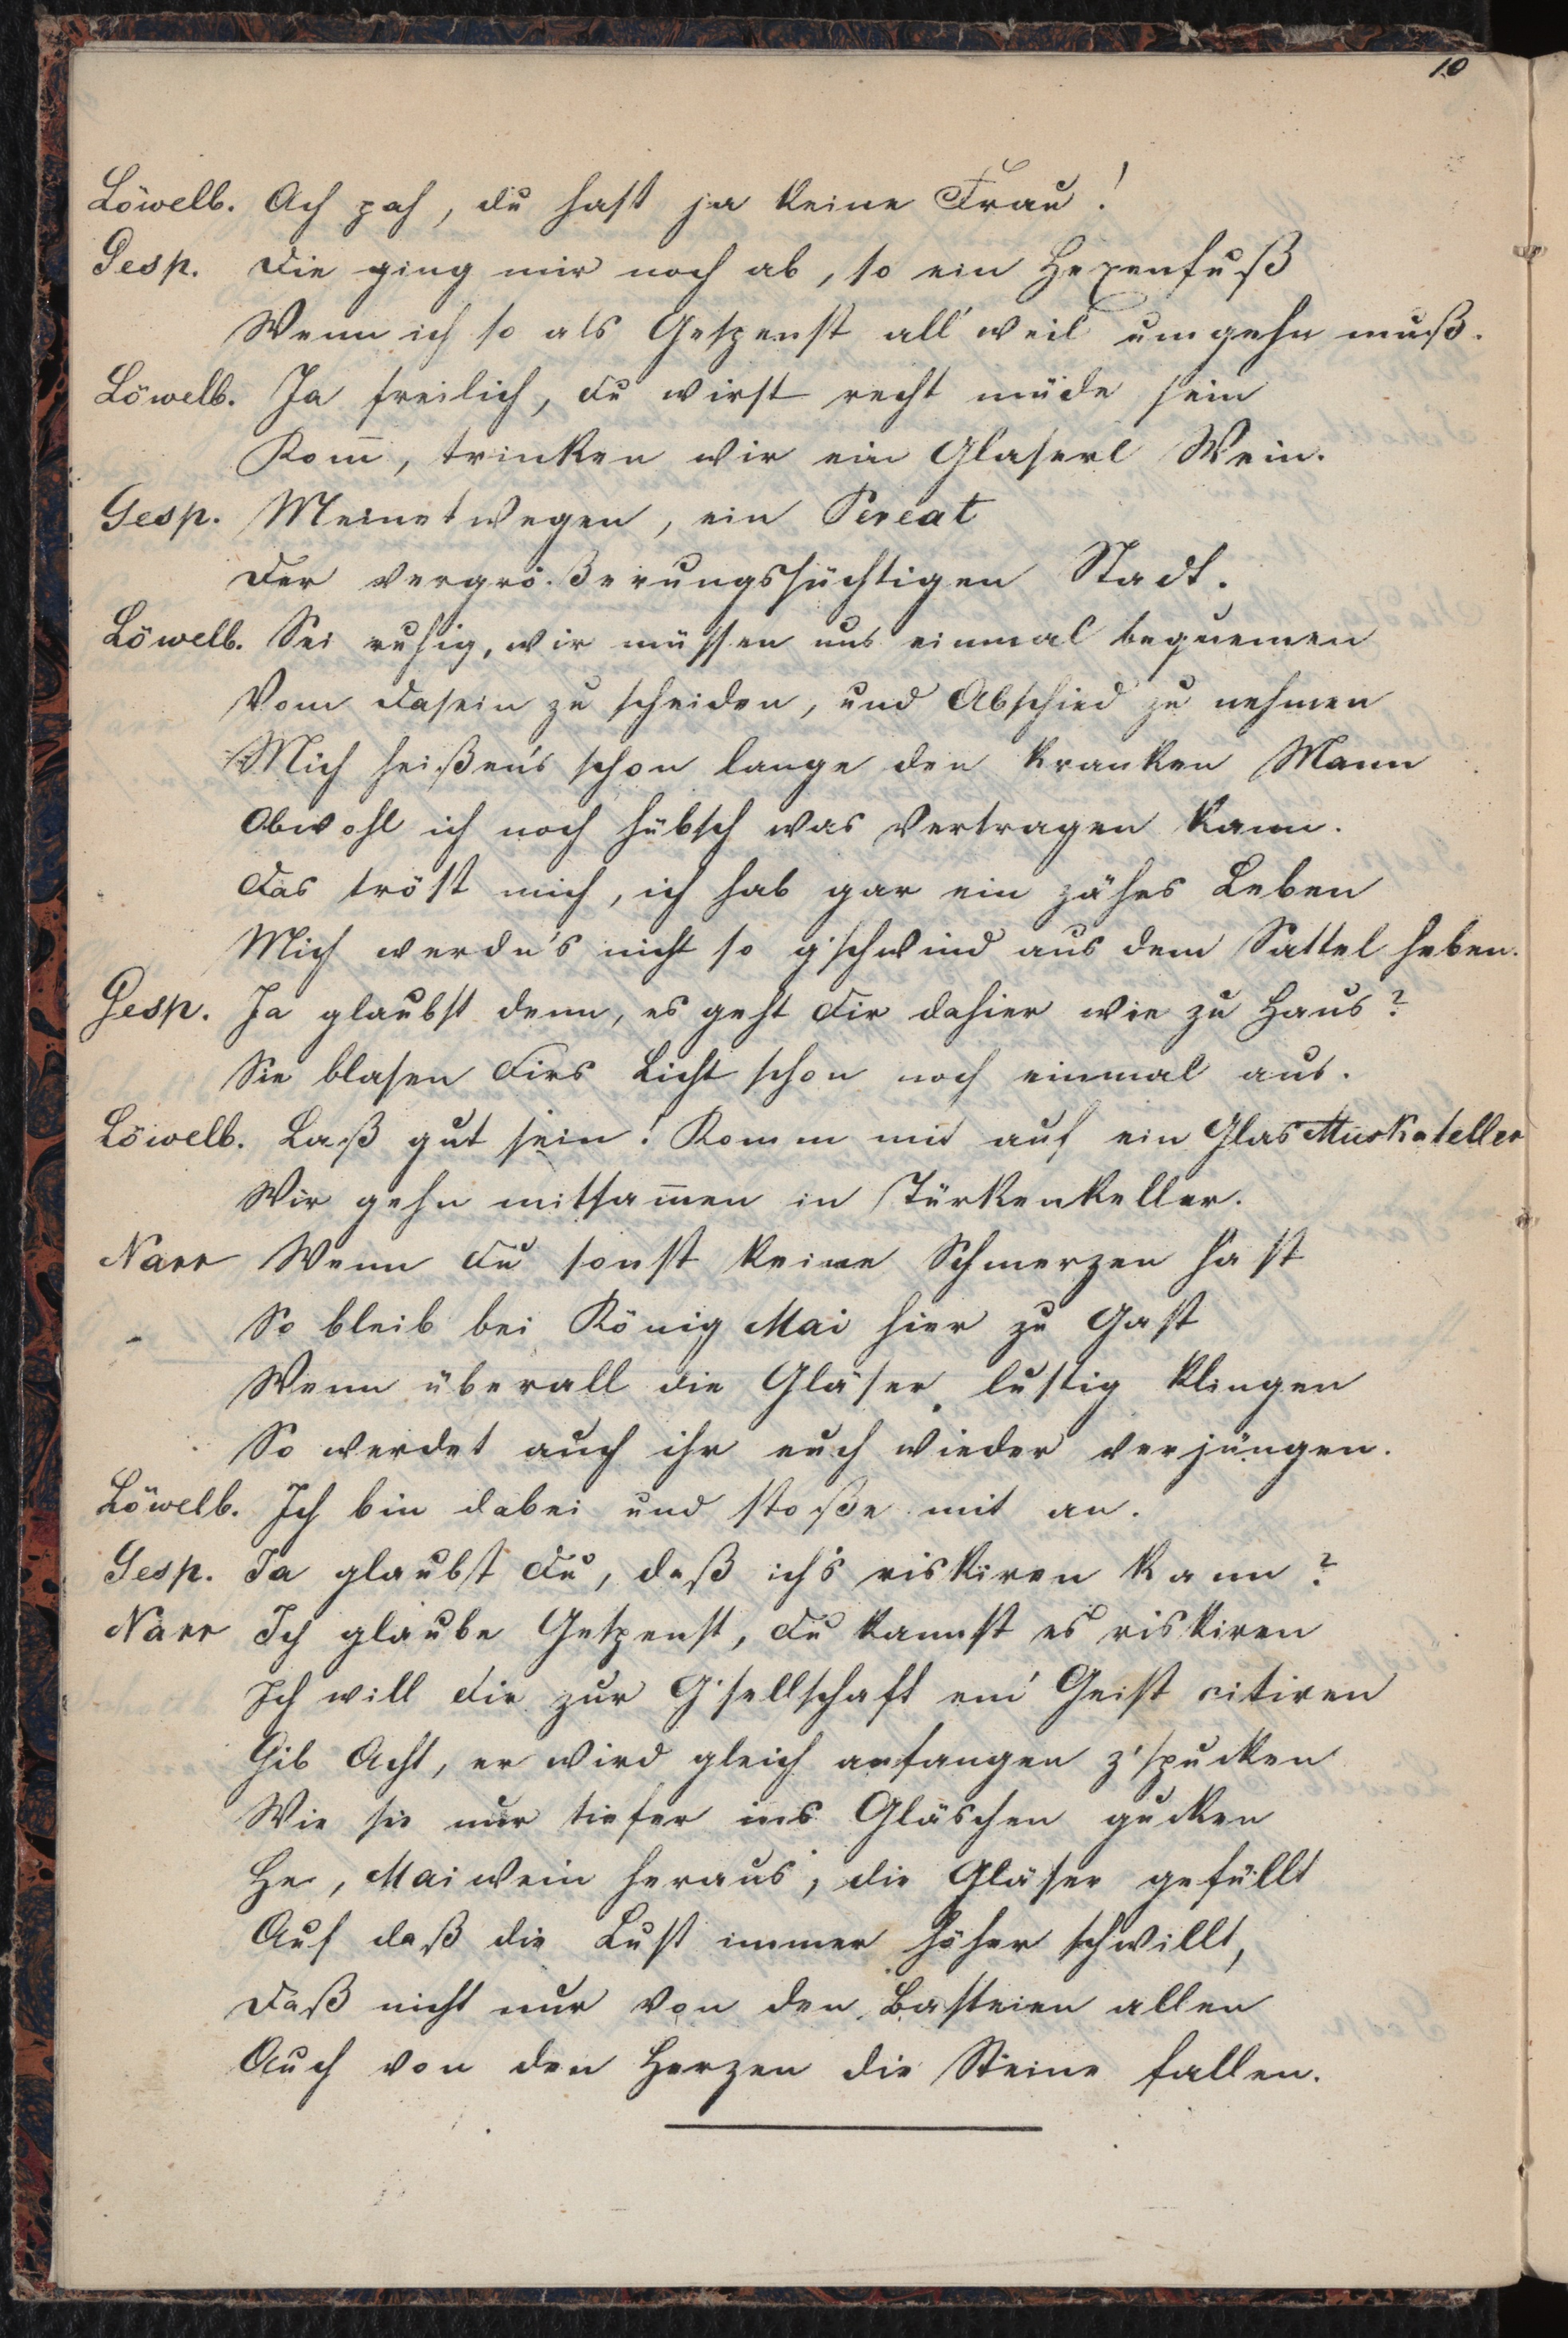 10
Löwelb. Ach pah, du hast ja keine Frau!
Gesp. Die ging mir noch ab, so ein Hexenfuß
Wenn ich so als Gespenst all'weil umgehn muß.
Löwelb. Ja freilich, Du wirst recht müde sein
Kom̅, trinken wir ein Glaserl Wein.
Gesp. Meinetwegen, ein Pereat
Der vergrößerungssüchtigen Stadt.
Löwelb. Sei ruhig, wir müssen uns einmal bequemen
Vom Dasein zu scheiden, und Abschied zu nehmen
Mich heißen's schon lange den kranken Mann
Obwohl ich noch hübsch was vertragen kann.
Das tröst mich, ich hab gar ein zähes Leben
Mich werdn's nicht so g'schwind aus dem Sattel heben.
Gesp. Ja glaubst denn, es geht Dir dahier wie zu Haus?
Sie blasen Dirs Licht schon noch einmal aus.
Löwelb. Laß gut sein! Komm mit auf ein Glas Muskateller
Wir gehn mitsam̅en in Türkenkeller.
Narr Wenn Du sonst keine Schmerzen hast
So bleib bei König Mai hier zu Gast
Wenn überall die Gläser lustig klingen
So werdet auch ihr euch wieder verjüngen.
Löwelb. Ich bin dabei und stoße mit an.
Gesp. Ja glaubst Du, daß ich's riskiren kann?
Narr Ich glaube Gespenst, Du kannst es riskiren
Ich will Dir zur G'sellschaft ein' Geist citiren
Gib Acht, er wird gleich anfangen z'spucken
Wie sie nur tiefer ins Gläschen gucken
He, Maiwein heraus, die Gläser gefüllt
Auf daß die Lust immer höher schwillt,
Daß nicht nur von den Basteien allen
Auch von den Herzen die Steine fallen.